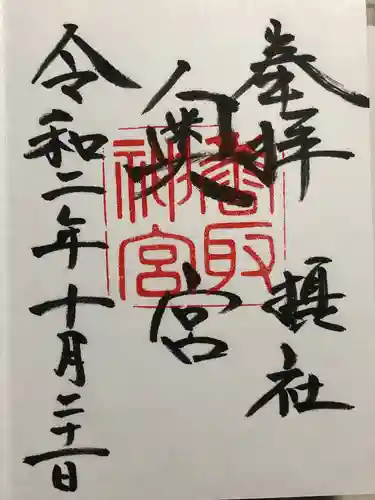 奉拝 摂社
奥宮
香取神宮
令和二年十月二十一日